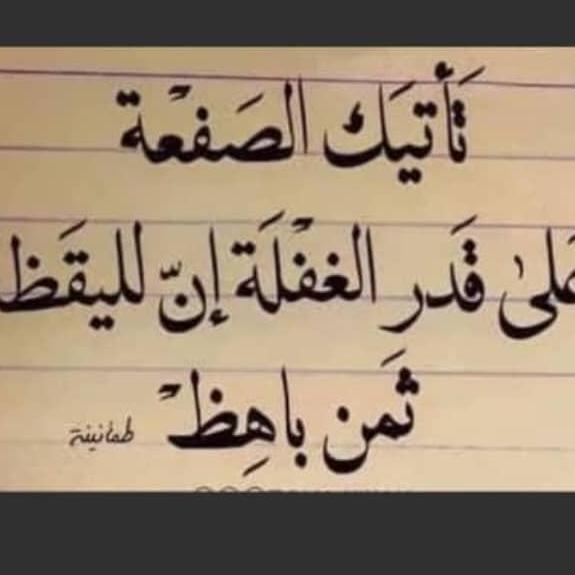 تَأتيَك الصَفعْة
عَلىٰ قَدر الغفْلَة إنّ لليقَظ
ثَمن باهِظْ
طمأنينة